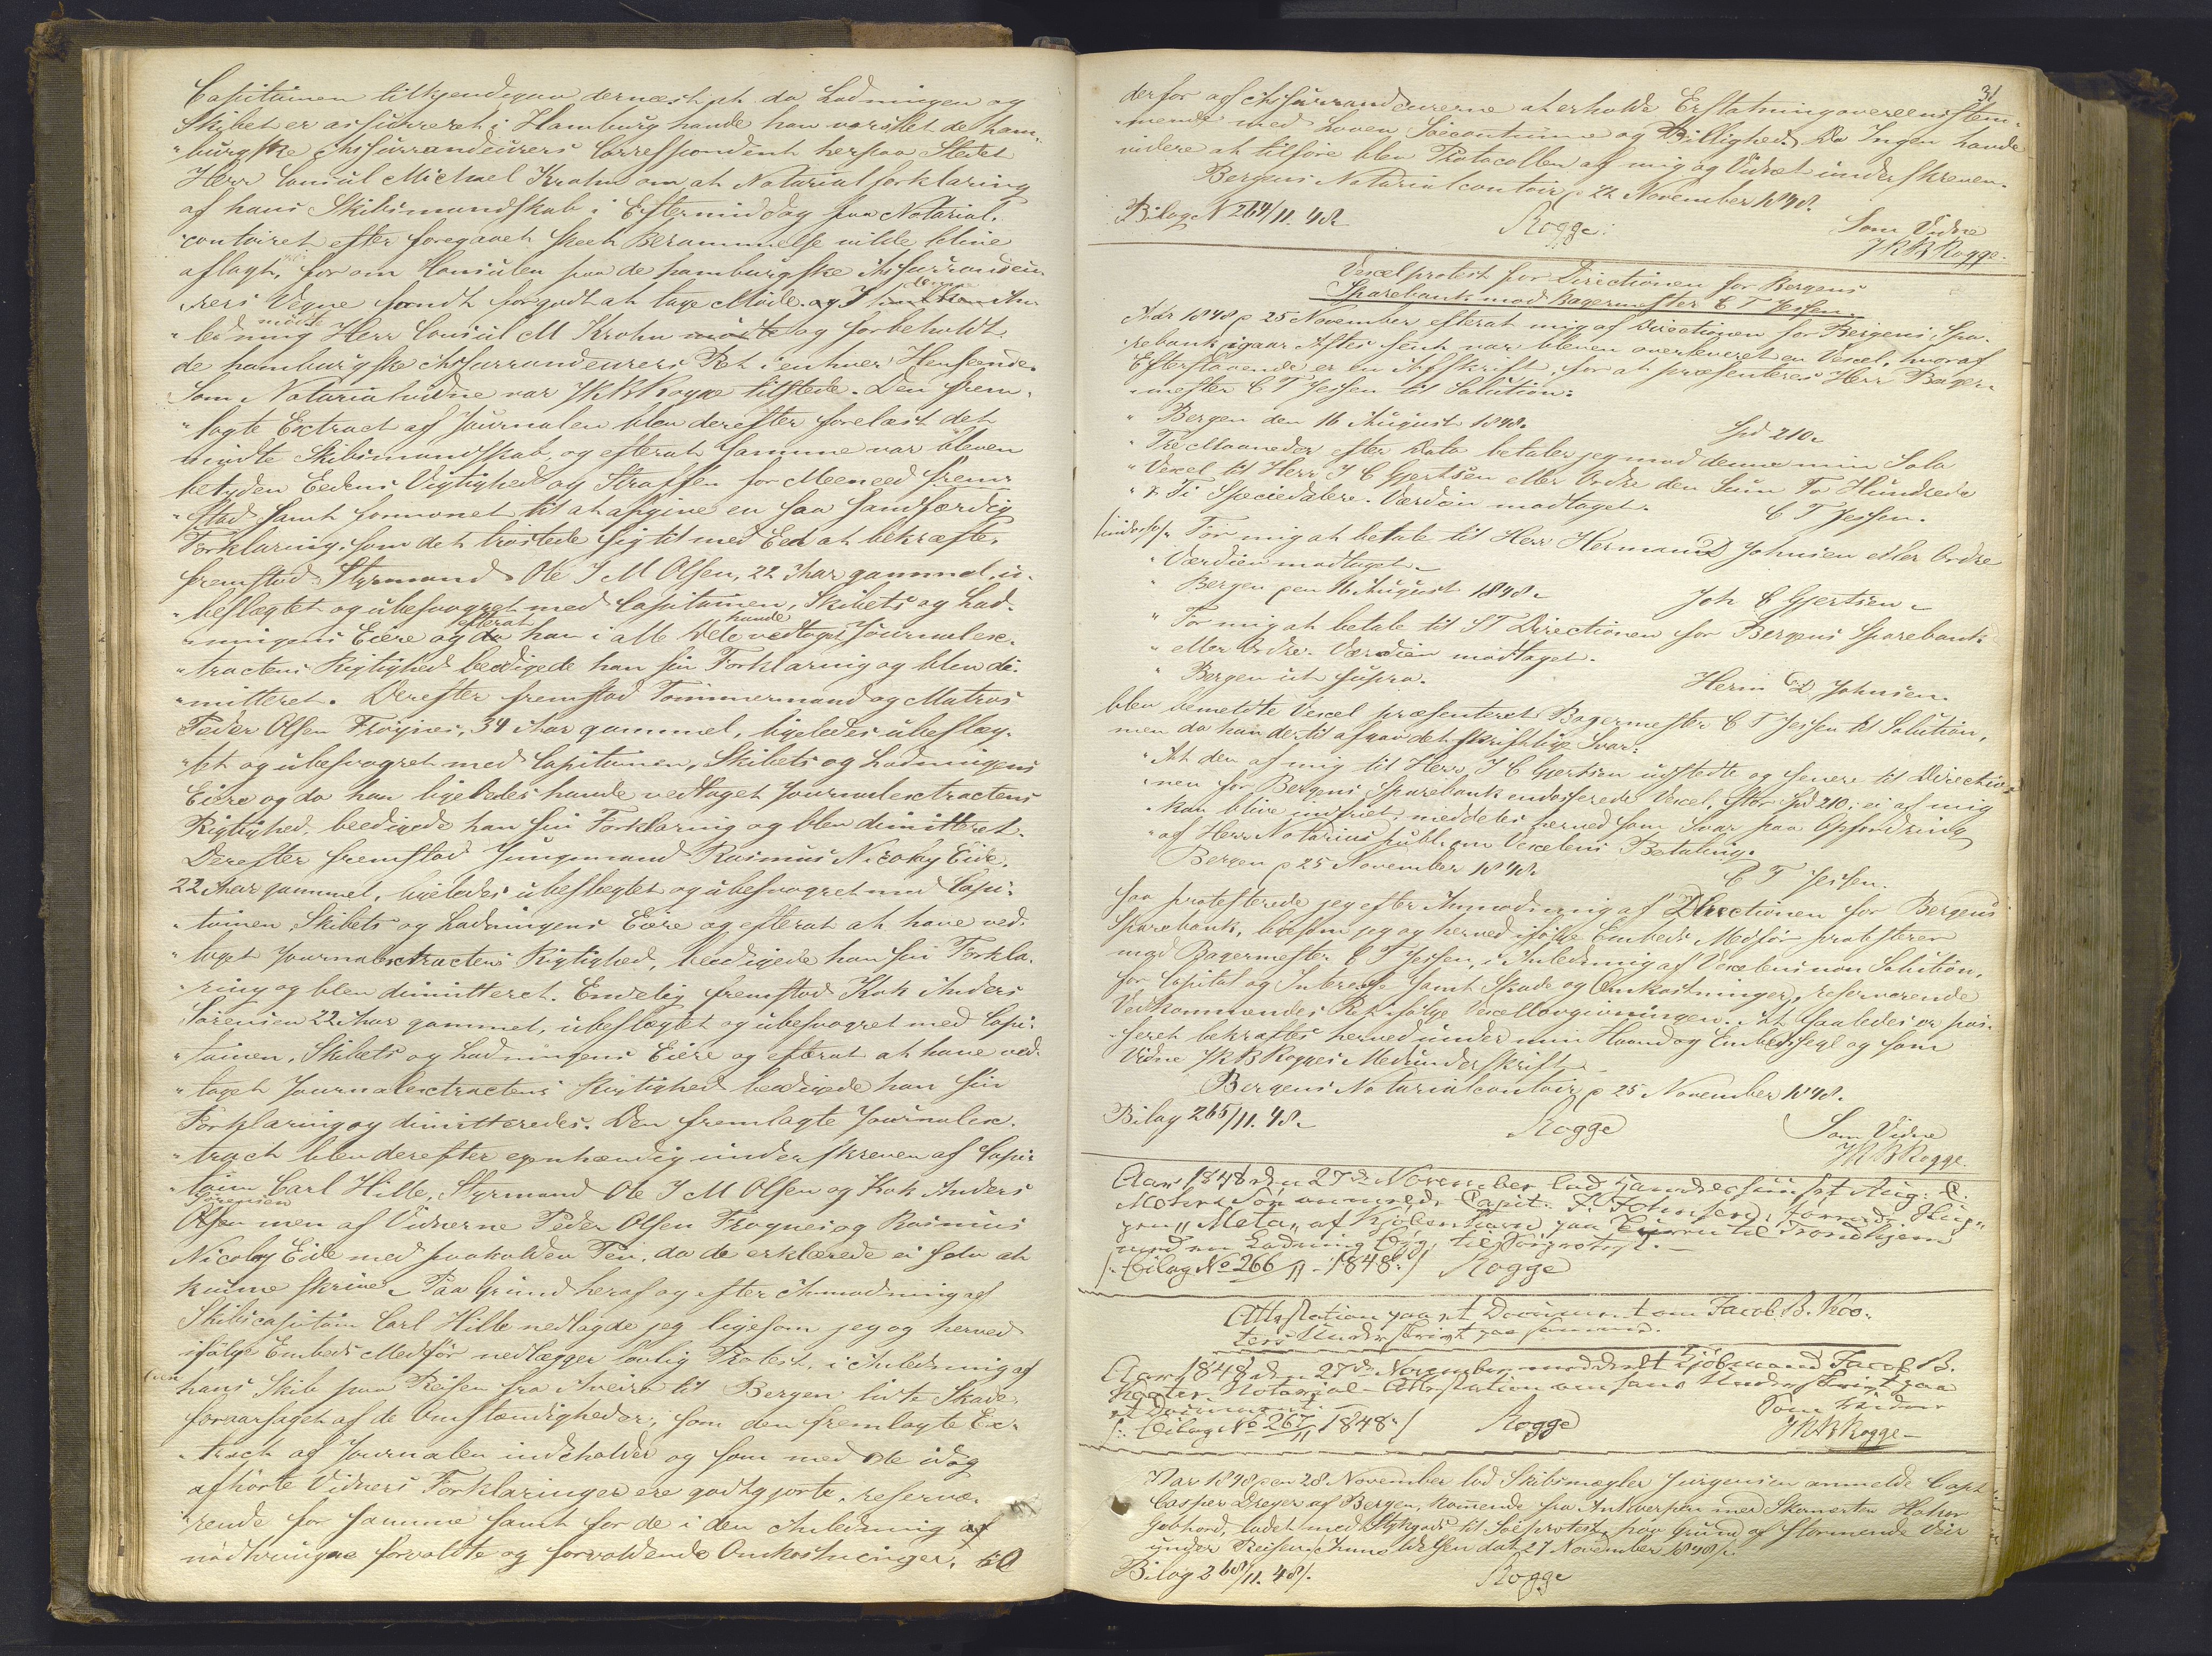 Capitainen tilkjendegav dernæst at da Ladningen og
Skibet er assureret i Hamburg havde han varslet de ham-
"burgske Assurrandeurers Correspondent herpaa Stedet
Herr Consul Michael Krohn om at Notarialforklaring
af hans Skibsmandskab i Eftermiddag paa Notarial-
"contoiret efter foregaaet skeet Berammelse vilde blive
aflagt, for om Consulen paa de hamburgske Assurrandeu-
"rers Vegne fandt forgodt at tage Møde. og I denne An-
"ledning mødte Herr Consul M Krohn og forbeholdt
de hamburgske Assurrandeurers Ret i enhver Henseende.
Som Notarialvidne var JKB Rogge tilstede. Den frem-
"lagte Extract af Journalen blev derefter forelæst det
mødte Skibsmandskab, og efterat Samme var bleven
betyden Eedens Vigtighed og Straffen for Meeneed frem-
"stod samt formanet til at afgive en saa sandfærdig
Forklaring, som det trøstede sig til med Eed at bekræfte,
fremstod Styrmand Ole J M Olsen, 22 Aar gammel, u-
"beslægtet og ubesvogret med Capitainen, Skibets og Lad-
"ningens Eiere og efterat han i alle Dele havde vedtaget Journalex-
"tractens Rigtighed beedigede han sin Forklaring og blev di-
"mitteret. Derefter fremstod Tømmermand og Matros
Peder Olsen Frøgnes, 34 Aar gammel, ligeledes ubeslæg-
"tet og ubesvogret med Capitainen, Skibets og Ladningens
Eiere og da han ligeledes havde vedtaget Journalextractens
Rigtighed, beedigede han sin Forklaring og blev dimitteret.
Derefter fremstod Jungmand Rasmus Nicolay Eide,
22 Aar gammel, ligeledes ubeslægtet og ubesvogret med Capi-
"tainen, Skibets og Ladningens Eiere og efterat at have ved-
"taget Journalextractens Rigtighed, beedigede han sin Forkla-
"ring og blev dimitteret. Endelig fremstod Kok Anders
Sørensen 22 Aar gammel, ubeslægtet og ubesvogret med Capi-
"tainen, Skibets og Ladningens Eiere og efterat at have ved-
"taget Journalextractens Rigtighed beedigede han sin
Forklaring og dimitteredes. Den fremlagte Journalex-
"tract blev derefter egenhændig underskreven af Capi-
"tain Carl Hille, Styrmand Ole J M Olsen og Kok Anders
Sørensen men af Vidnerne Peder Olsen Frøgnes og Rasmus
Nicolay Eide med paaholden Pen, da de erklærede ei selv at
kunne skrive. Paa Grund heraf og efter Anmodning af
Skibscapitain Carl Hille nedlagde jeg ligesom jeg og herved
ifølge Embeds Medfør nedlægger lovlig Protest, i Anledning af
hans Skib paa Reisen fra Aveiro til Bergen lidte Skade,
foraarsaget af de Omstændigheder, som den fremlagte Ex-
"tract af Journalen indeholder og som med de idag
afhørte Vidners Forklaringer ere godtgjorte, reserve-
"rende for samme samt for de i den Anledning af
nødtvungne forvoldte og forvoldende Omkostninger,
31
derfor af Assurrandeurerne at erholde Erstatning overeensstem-
"mende med Loven Søecoutume og Billighed. Da Ingen havde
videre at tilføre blev Protocollen af mig og Vidnet underskreven.
Bergens Notarialcontoir, p 22 November 1848.
Bilag N 264/11. 48
Rogge.
Som Vidne
JKB Rogge.
Vexelprotest for Directionen for Bergens
Sparebank mod Bagermester C T Jessen
Aar 1848 p 25 November efterat mig af Directionen for Bergens Spa-
rebank igaar Aftes sent var bleven overleveret en Vexel, hvoraf
Efterstaaende er en Afskrift, for at præsenteres Herr Bager-
"mester C T Jessen til Solution:
" Bergen den 16 August 1848.
Spd 210.
" Tre Maaneder efter Dato betaler jeg mod denne min Sola
" Vexel til Herr J C Gjertsen eller Ordre den Sum To Hundrede
" & Ti Speciedalere. Værdien modtaget.
C T Jessen.
" For mig at betale til Herr Herman D Johnsen eller Ordre
" Værdien modtaget.
" Bergen pen 16 August 1848.
Joh C Gjertsen
" For mig at betale til ST Directionen for Bergens Sparebank
" eller Ordre. Værdien modtaget.
" Bergen ut supra.
Herm D Johnsen.
blev bemeldte Vexel præsenteret Bagermester C T Jessen til Solution,
men da han dertil afgav det skriftlige Svar:
" At den af mig til Herr J C Gjertsen udstedte og senere til Directio-
"nen for Bergens Sparebank endosserede Vexel, stor Spd 210, ei af mig
" kan blive indfriet, meddeles herved som Svar paa Opfordring
" af Herr Notarius publ. om Vexelens Betaling.
Bergen p 25 November 1848
C T Jessen.
saa protesterede jeg efter Anmodning af Directionen for Bergens
Sparebank, ligesom jeg og herved ifølge Embeds Medfør protesterer
mod Bagermester C T Jessen, i Anledning af Vexelens non Solution,
for Capital og Interesse samt Skade og Omkostninger, reserverende
Vedkommendes Ret ifølge Vexellovgivningen. At saaledes er pas-
"seret bekræftes herved under min Haand og Embedssegl og som
Vidne JKB Rogges Medunderskrift.
Bergens Notarialcontoir p 25 November 1848.
Bilag 265/11. 48.
Rogge
Som Vidne
JKB Rogge.
Aar 1848 den 27de November lod Handelshuset Aug: C.
Mohr & Søn anmelde Capit. Johnsen, førende
"Meta" af Kjøbenhavn paa Reisen til Trondhjem
med en Ladning Byg, til Søeprotest.
/: Bilag No 266/11 - 1848:/ Rogge
Attestation paa et Document om Jacob B. Koo-
ters Underskrift paa samme.
Aar 1848 den 27de November meddeelt Kjøbmand Jacob B.
Kooter Notarial-Attestation om hans Underskrift paa
et Document.
/: Bilag No 267/11 1848:/ Rogge
Som Vidne
JKB Rogge
Aar 1848 den 28. November lod Skibsmægler Jürgensen anmelde Capt
Casper Dreyer af Bergen, komende fra Antwerpen med Skonnerten
ladet med Stykgods til Søeprotest, paa Grund af stormende Veir
under Reisen. Anmeldelsen dat 27 November 1848.
Bilag 268/11. 48/.
Rogge